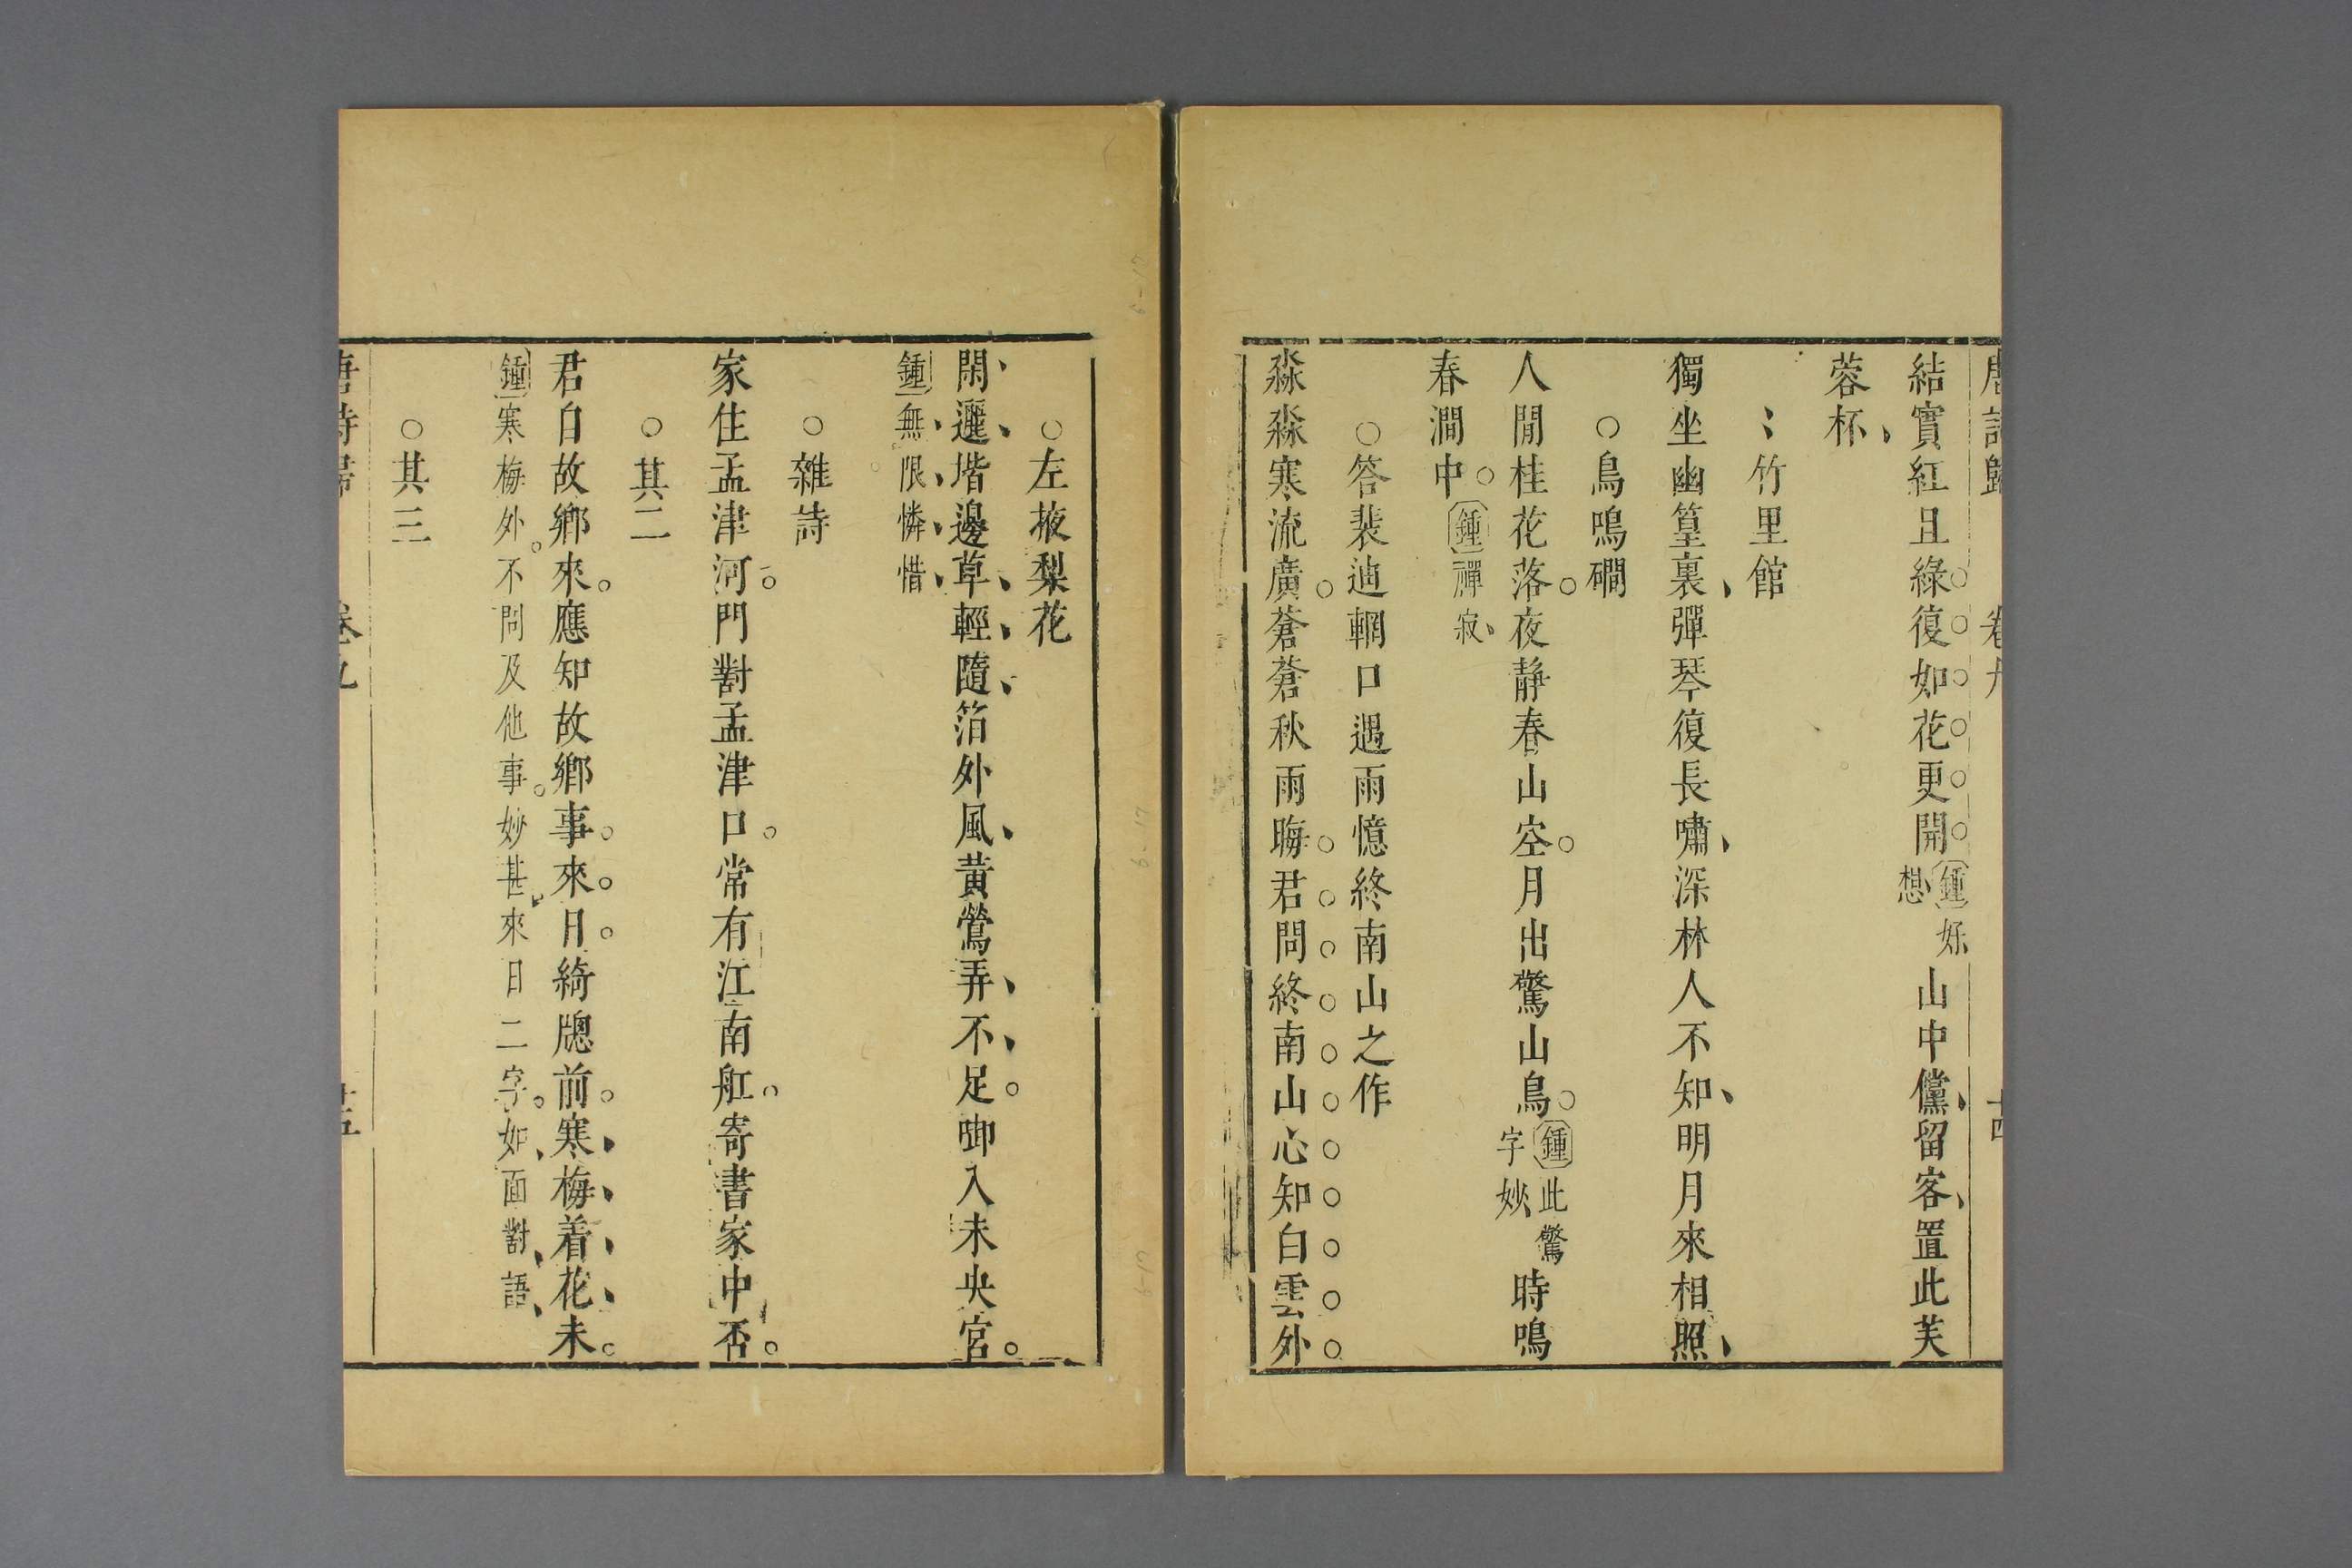 結實紅且綠復如花更開鍾好想山中儻留客置此芙
蓉杯
竹里館
獨坐幽篁裏彈琴復長嘯深林人不知明月來相照
○鳥鳴磵
人閒桂花落夜靜春山空月出驚山鳥鍾此驚字妙時鳴
春澗中鍾禪寂
○答裴迪輞口遇雨憶終南山之作
淼淼寒流廣蒼蒼秋雨晦君問終南山心知白雲外
○左掖梨花
閑灑堦邊草輕隨箔外風黃鶯弄不足啣入未央宮
鍾無限憐惜
○雜詩
家住孟津河門對孟津口常有江南舡寄書家中否
○其二
君自故鄉來應知故鄉事來日綺牕前寒梅着花未
鍾寒梅外不問及他事妙甚來日二字如面對語
○其三